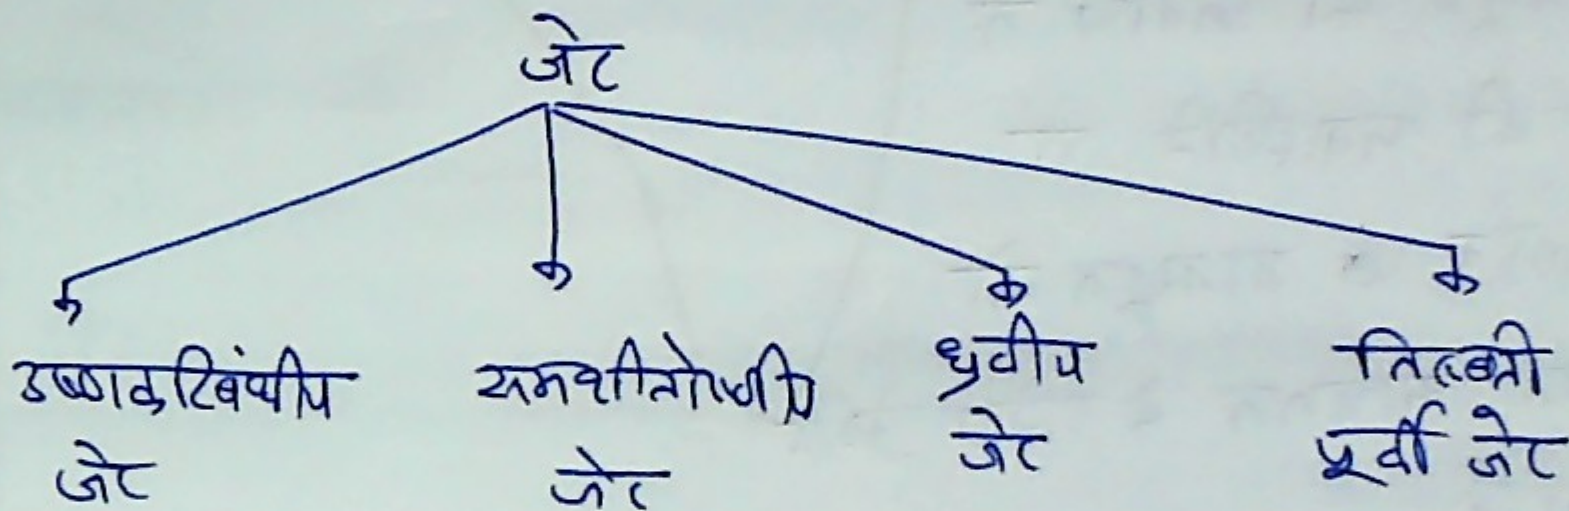 जेट
उष्णकटिबंधीय
जेट
समशीतोष्णीय
जेट
ध्रुवीय
जेट
तिब्बती
पूर्वी जेट